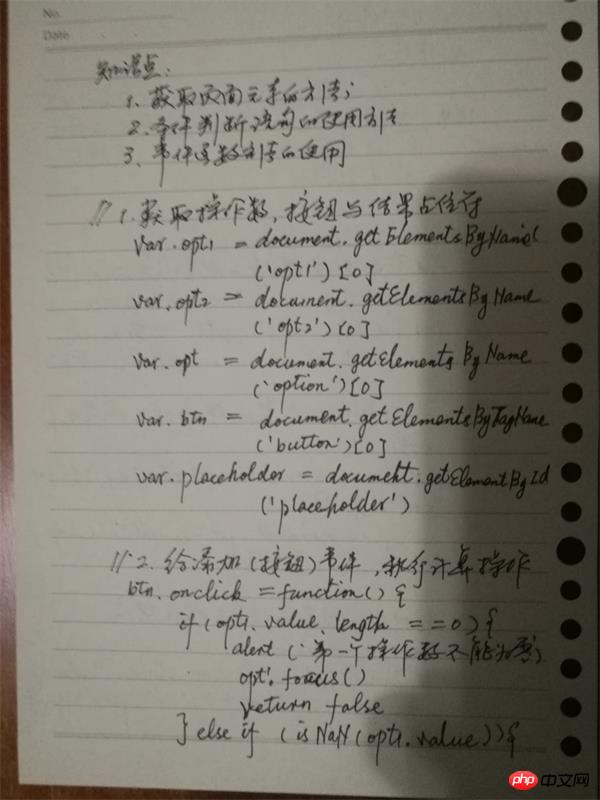 No.
Date
知识点:
1、获取页面元素的方法;
2、条件判断语句的使用方法
3、事件函数方法的使用
// 1. 获取操作数,按钮与结果占位符
var.opt1 = document.getElementsByName
('opt1')[0]
var.opt2 = document.getElementsByName
('opt2')[0]
var.opt = document.getElements By Name
('option')[0]
var.btn = document.getElementsByTagName
('button')[0]
var.placeholder = document.getElementById
('placeholder')
// 2. 给添加(按钮)事件,执行计算操作
btn.onclick = function() {
if (opt1.value.length ==0) {
alert('第一个操作数不能为空')
opt1.focus()
return false
} else if (isNaN(opt1.value)){
php 中文网